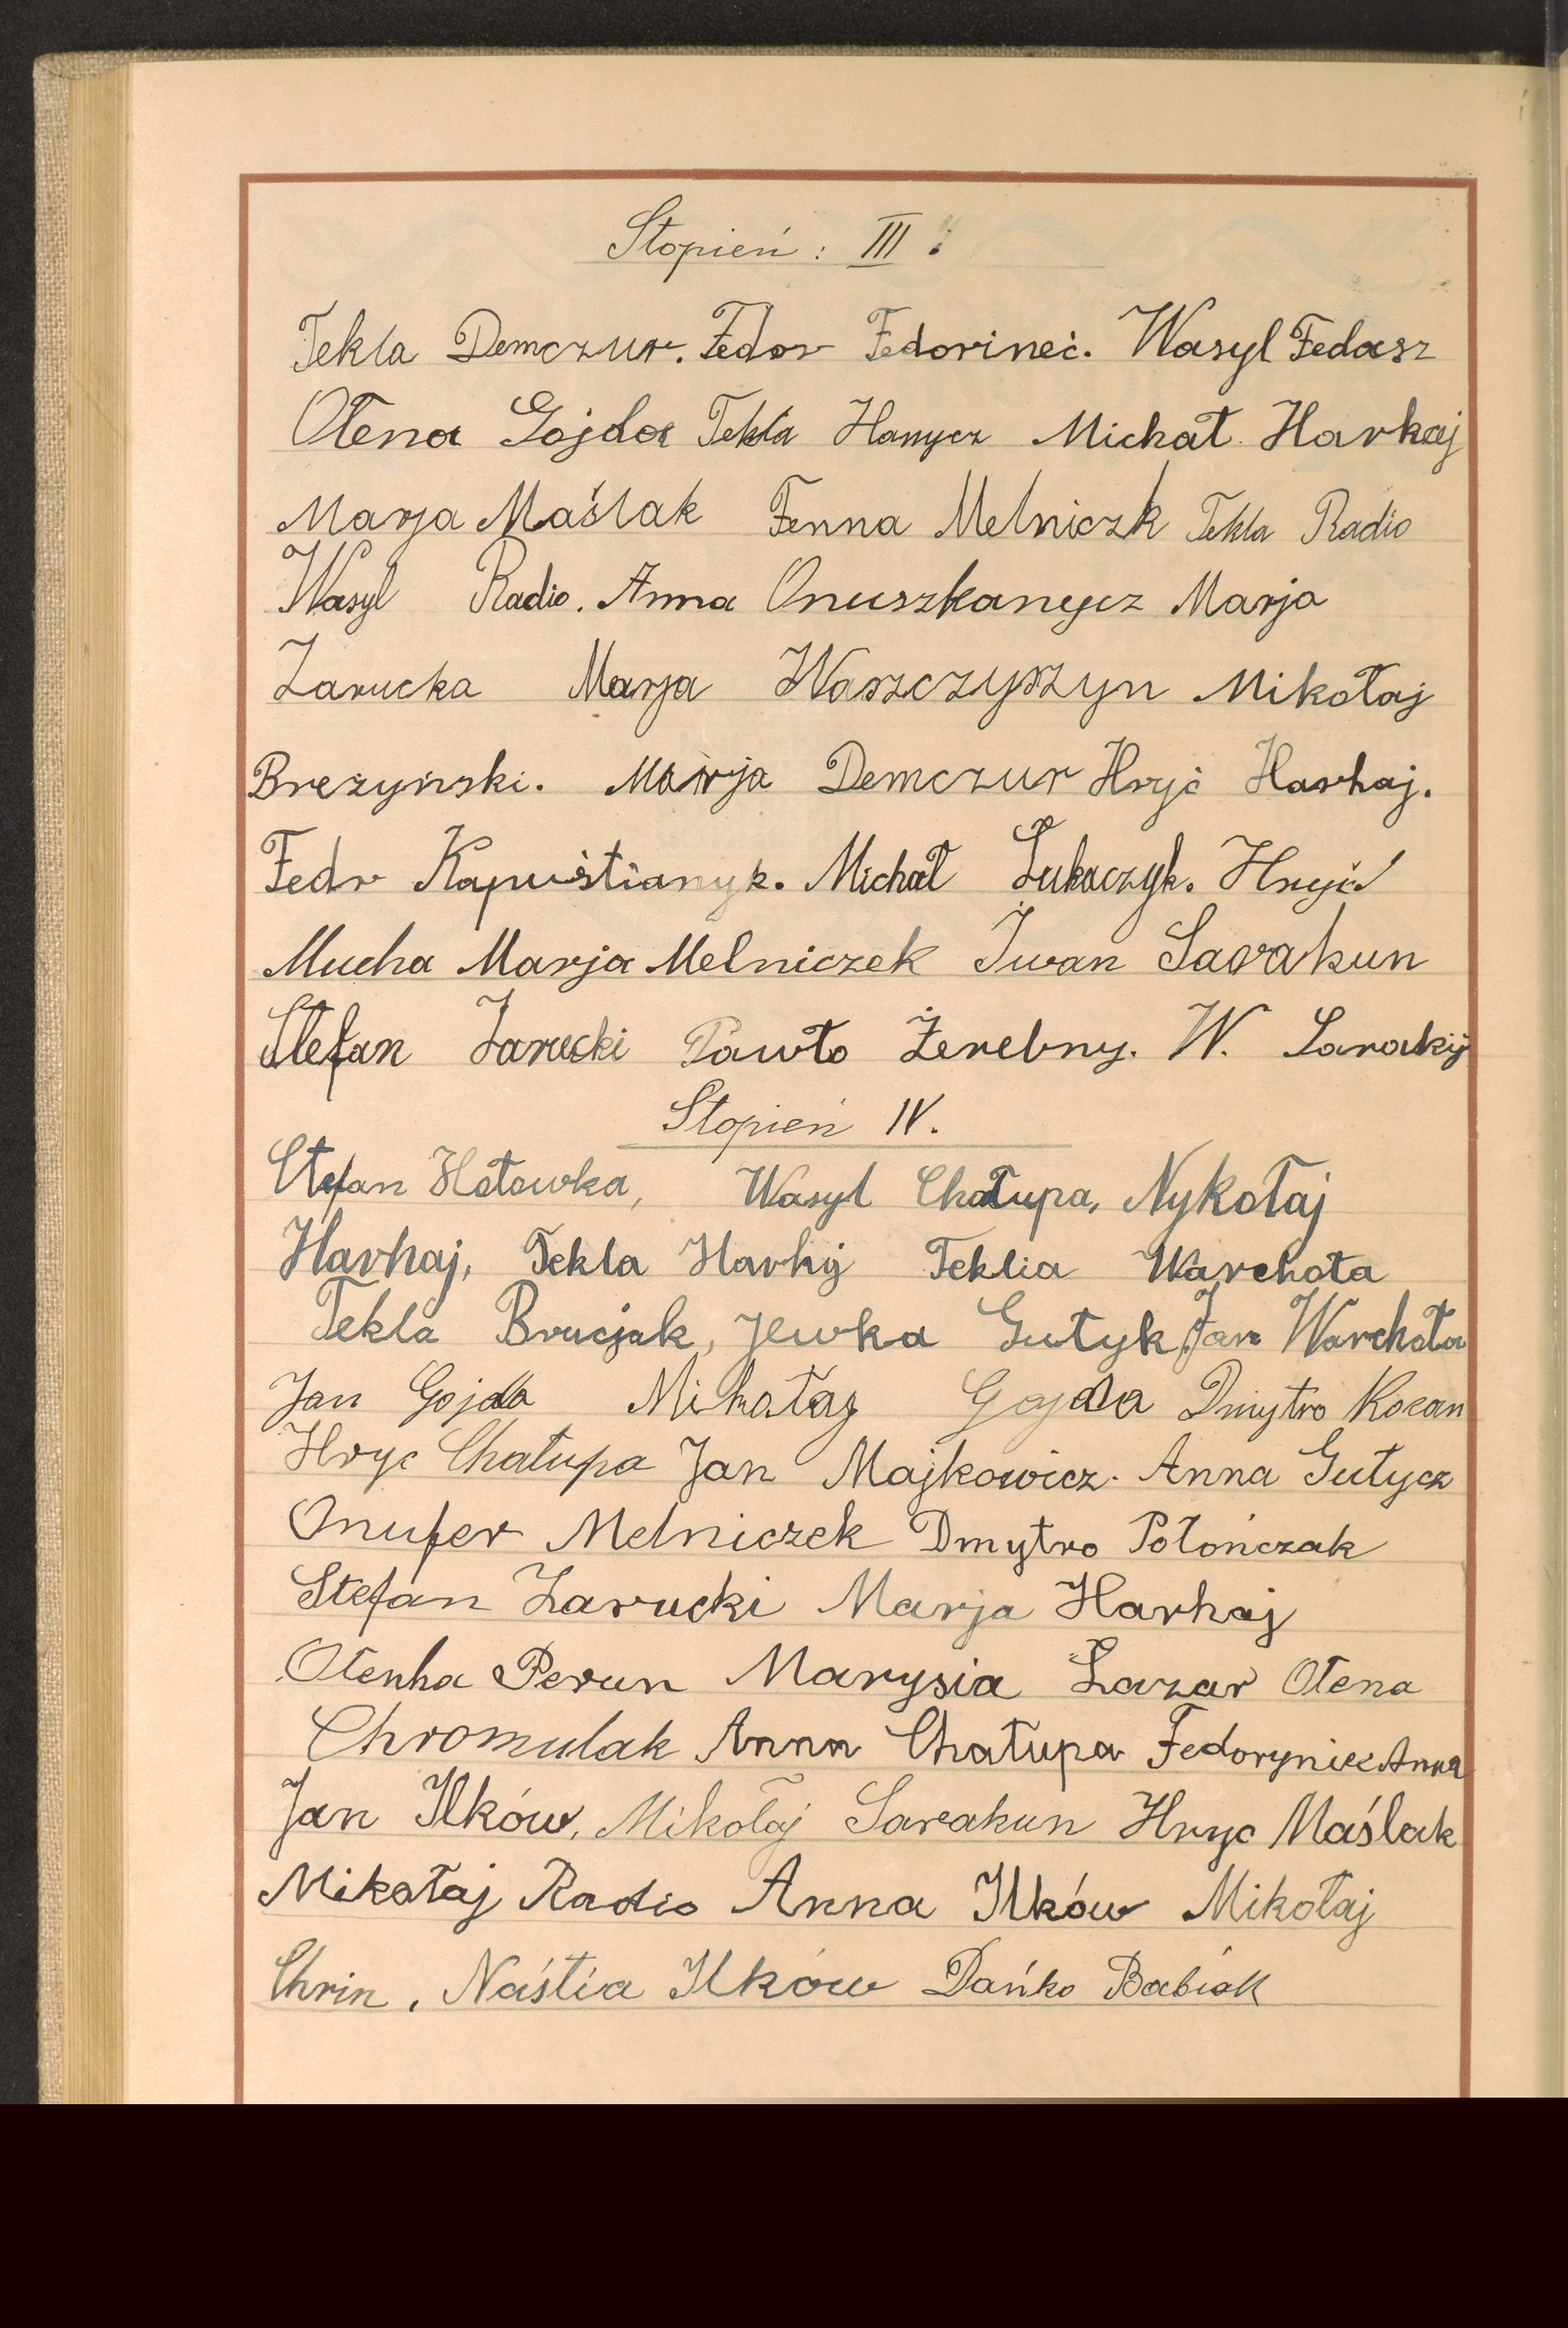 Stopień : III.
Tekla Demczur. Fedor Fedorineć. Wasyl Fedasz
Ołena Gojda Tekla Hanycz Michał Harhaj
Marja Maślak Fenna Melniczk Tekla Radio
Wasyl Radio. Anna Onuszkanycz Marja
Zarucka Marja Waszczyszyn Mikołaj
Breżyński. Marja Demczur Hryć Harhaj.
Fedr Kapuistianyk. Michał Łukaczyk. Hryć
Mucha Marja Melniczek Iwan Sarakun
Stefan Zarucki Pawło Żerebny. W.
Stopień IV.
Stefan Hotowka, Wasyl Chałupa, Nykołaj
Harhaj, Tekla Harhij Teklia Warchoła
Tekla Brucjak, Jewka Gutyk, Jan Warchoła
Jan Gojda Mikołaj Gojda Dmytro Kocan
Hryc Chałupa Jan Majkowicz. Anna Gutycz
Onufer Melniczek Dmytro Połończak
Stefan Zarucki Marja Harhaj
Ołenha Perun Marysia Łazar Ołena
Chromulak Anna Chałupa Fedoryniec Anna
Jan Ilków, Mikołaj Sarakun Hryc Maślak
Mikołaj Radio Anna Ilków Mikołaj
Chrin, Naśtia Ilków Dańko Babiak